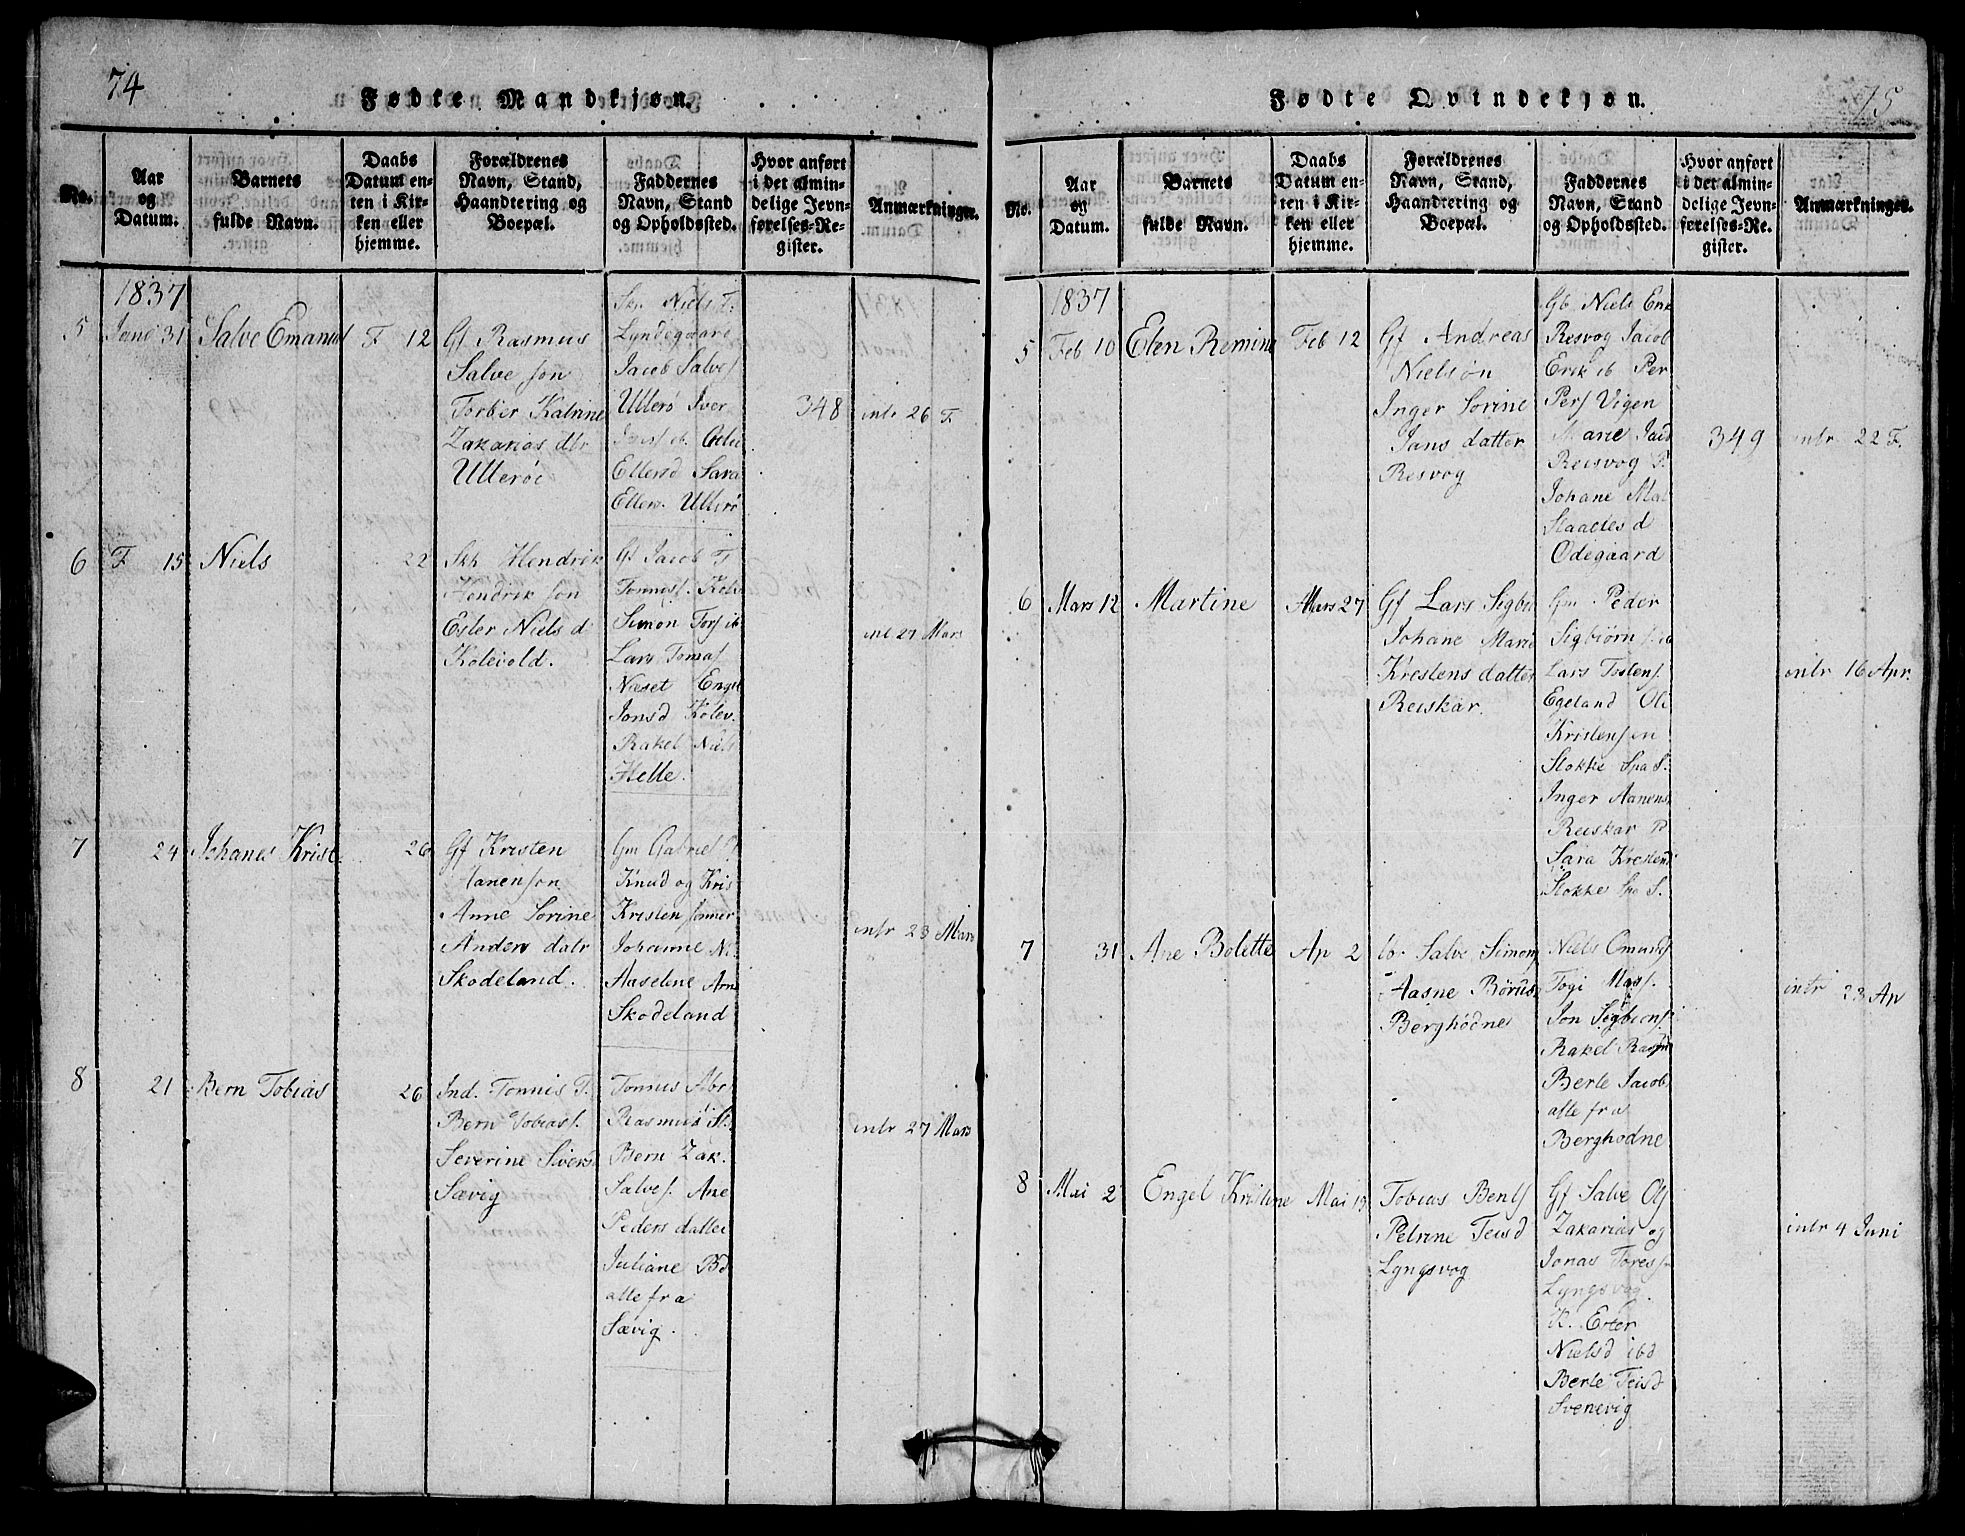 74
Fødte Mandkjøn.
No.
Aar
og
Datum.
Barnets
fulde Navn.
Daabs
Datum en-
ten i Kir-
ken eller
hjemme.
Forældrenes
Navn, Stand,
Haandtering og
Boepæl.
Faddernes
Navn, Stand
og Opholdssted.
Hvor anført
i det almin-
delige Jevn-
førelses-Re-
gister.
Anmærkninger.
1837
5
Janu 31
Salve Emanuel
F 12
Gf Rasmus
Salve søn
Torber Katrine
Zakarias dtr
Ulterøe
Skp Niels T.
Lyndegaard
Jacob Salves
Ulterø Iver
Ellersd Sara
Ellers. Ulterø
348
intr 26 F.
6
F. 15
Niels
22
Skp Hendrik
Hendrik søn
Ester Niels d
Kolevold.
Gf Jacob T
Tonnes. Kole
Simon Tors ib
Lars Tomas
Næset Engel
Jonsd Kolev.
Rakel Niels
Helle.
int 27 Mars
7
24
Johanes Krist.
26
Gf Kristen
Aanensøn
Anne Sorine
Anders datr
Skodeland.
Gm Gabriel
Knud og Kris
Kristen sønner
Johanne Ni.
Aaselene Arne
Skodeland
intr 23 Mars
8
21
Bern Tobias
26
Ind. Tonnis T.
Bern Tobias.
Severine Sivers
Sævig
Tonnes Abr
Rasmus S.
Bern Zak.
Salves. Ane
Peders datter
Juliane Bd
alle fra
Sævig.
intr 27 Mars
75
Fødte Qvindekjøn.
No.
Aar
og
Datum.
Barnets
fulde Navn.
Daabs
Datum en-
ten i Kir-
ken eller
hjemme.
Forældrenes
Navn, Stand,
Haandtering og
Boepæl.
Faddernes
Navn, Stand
og Opholdssted.
Hvor anført
i det almin-
delige Jevn-
førelses-Re-
gister.
Anmærkninger.
1837
5
Feb 10
Elen Remine
Feb 12
Gf Andreas
Nielsøn
Inger Sorine
Jans datter
Resvog
Gb Niels Erik
Resvog Jacob
Erik ib Per
Pers Vigen
Marie Jacd
Reisvog P.
Johane Mal
Staalesd
Odegaard
349
intr 22 F.
6
Mars 12
Martine
Mars 27
Gf Lars Sigbi
Johane Marie
Krestens datter
Reiskar.
Gm Peder
Sigbiørn s. ib
Lars Tostens.
Egeland Ole
Kristensen
Slokke Spa S.
Inger Aanens.
Reiskar P
Sara Krestend
Slokke Spa S.
intr 16 Apr.
7
31
Ane Bolette
Ap 2
Salve Simon
Aasne Børus
Berghødne
Niels Omunds
Togi Mass.
Jon Sigbiøns.
Rakel Rasm
Berte Jacob
alle fra
Berghodne
intr 23 Ap
8
Mai 2
Engel Kristine
Mai 19
Tobias Bents
Petrine Teisd
Lyngsvog
Gf Salve Ols
Zakarias og
Jonas Tores
Lyngsvog.
K. Ester
Nielsd ibd
Berte Teisd
Svenevig
intr 4 Juni